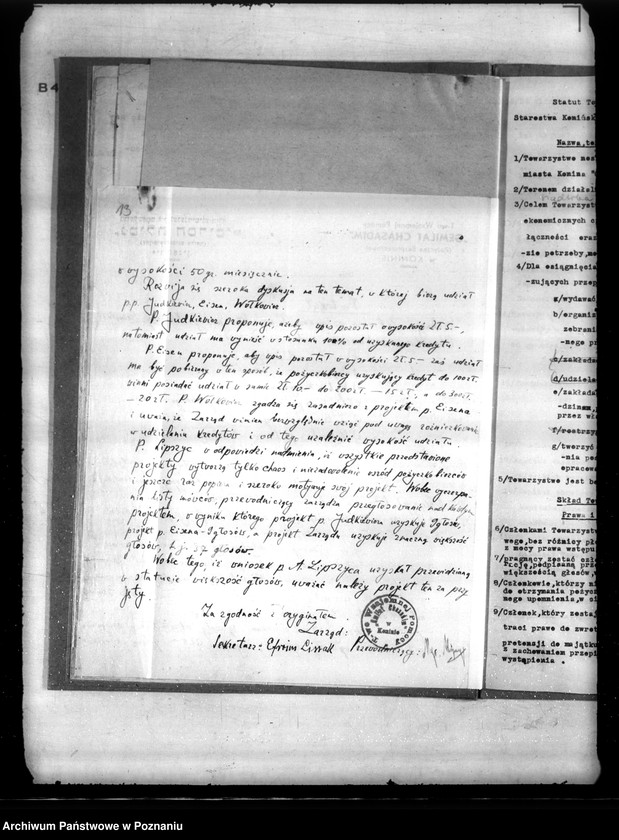 B4
13
"GEMILAT CHASADIM"
w wysokości 50 gr. miesięcznie.
Rozwija się szeroka dyskusja na ten temat, w której biorą udział
p.p. Judkiewicz, Eisen, Wołkowicz.
P. Judkiewicz proponuje, ażeby wpis pozostał w wysokość Zł. 5.-,
natomiast udział ma wynosić w stosunku 100% od uzyskanego kredytu.
P. Eisen proponuje, aby wpis pozostał w wysokości Zł. 5.- zaś udział
ma być pobierany w ten sposób, że pożyczkobiorcy uzyskujący kredyt do 100 zł.
winni posiadać udział w sumie Zł. 10.- do 200 zł. - 15 zł., a do 300 zł.
- 20 zł. P. Wołkowicz zgadza się zasadniczo z projektem p. Eisena
i uważa, że Zarząd winien bezwzględnie wziąć pod uwagę
w udzielaniu kredytów i od tego uzależnić wysokość udziału.
P. Lipszyc w odpowiedzi nadmienia, że wszystkie przedstawione
projekty wytworzą tylko chaos i niezadowolenie wśród pożyczkobiorców
i jeszcze raz popiera i szeroko motywuje swój projekt. Wobec wyczerpa-
nia listy mówców, przewodniczący zarządza przegłosowanie nad każdym
projektem, w wyniku którego projekt p. Judkiewicza uzyskuje głosów,
projekt p. Eisena - głosów, a projekt Zarządu uzyskuje znaczną większość
głosów, t.j. 37 głosów.
Wobec tego, że wniosek p. A. Lipszyca uzyskał przewidzianą
w statucie większość głosów, uważać należy projekt ten za przy-
jęty.
Za zgodność z oryginałem
Zarząd:
Sekretarz: Efroim Lissak Przewodniczący:
T-wo Wzajemnej Pomocy
w Koninie
Statut To
Starostwa Konińsk
Nazwa, te
1/Towarzystwo nos
miasta Konina
2/Terenem działal
3/Celem Towarzyst
ekonomicznych c
łączności oraz
-zie potrzeby, me
4/Dla osiągnięcia
-zujących przep
a/wydawać
b/organiz
zebrani
-nego pr
c/zakłada
d/udziela
e/zakłada
-dzinom,
przez wła
f/rozstrzy
g/tworzyć
-nia po
opracowa
5/Towarzystwo jest be
Skład To
Prawa i
6/Członkami Towarzystw
wego, bez różnicy pł
z mocy prawa wstępu
7/pragnący zostać czło
większością głosów,
8/Członkowie, którzy ni
do otrzymania pożycz
nego upomnienia, w si
9/Członek, który zostaj
traci prawo do zwrot
pretensji do majątku
z zachowaniem przepi
wystąpienia .
Archiwum Państwowe w Poznaniu